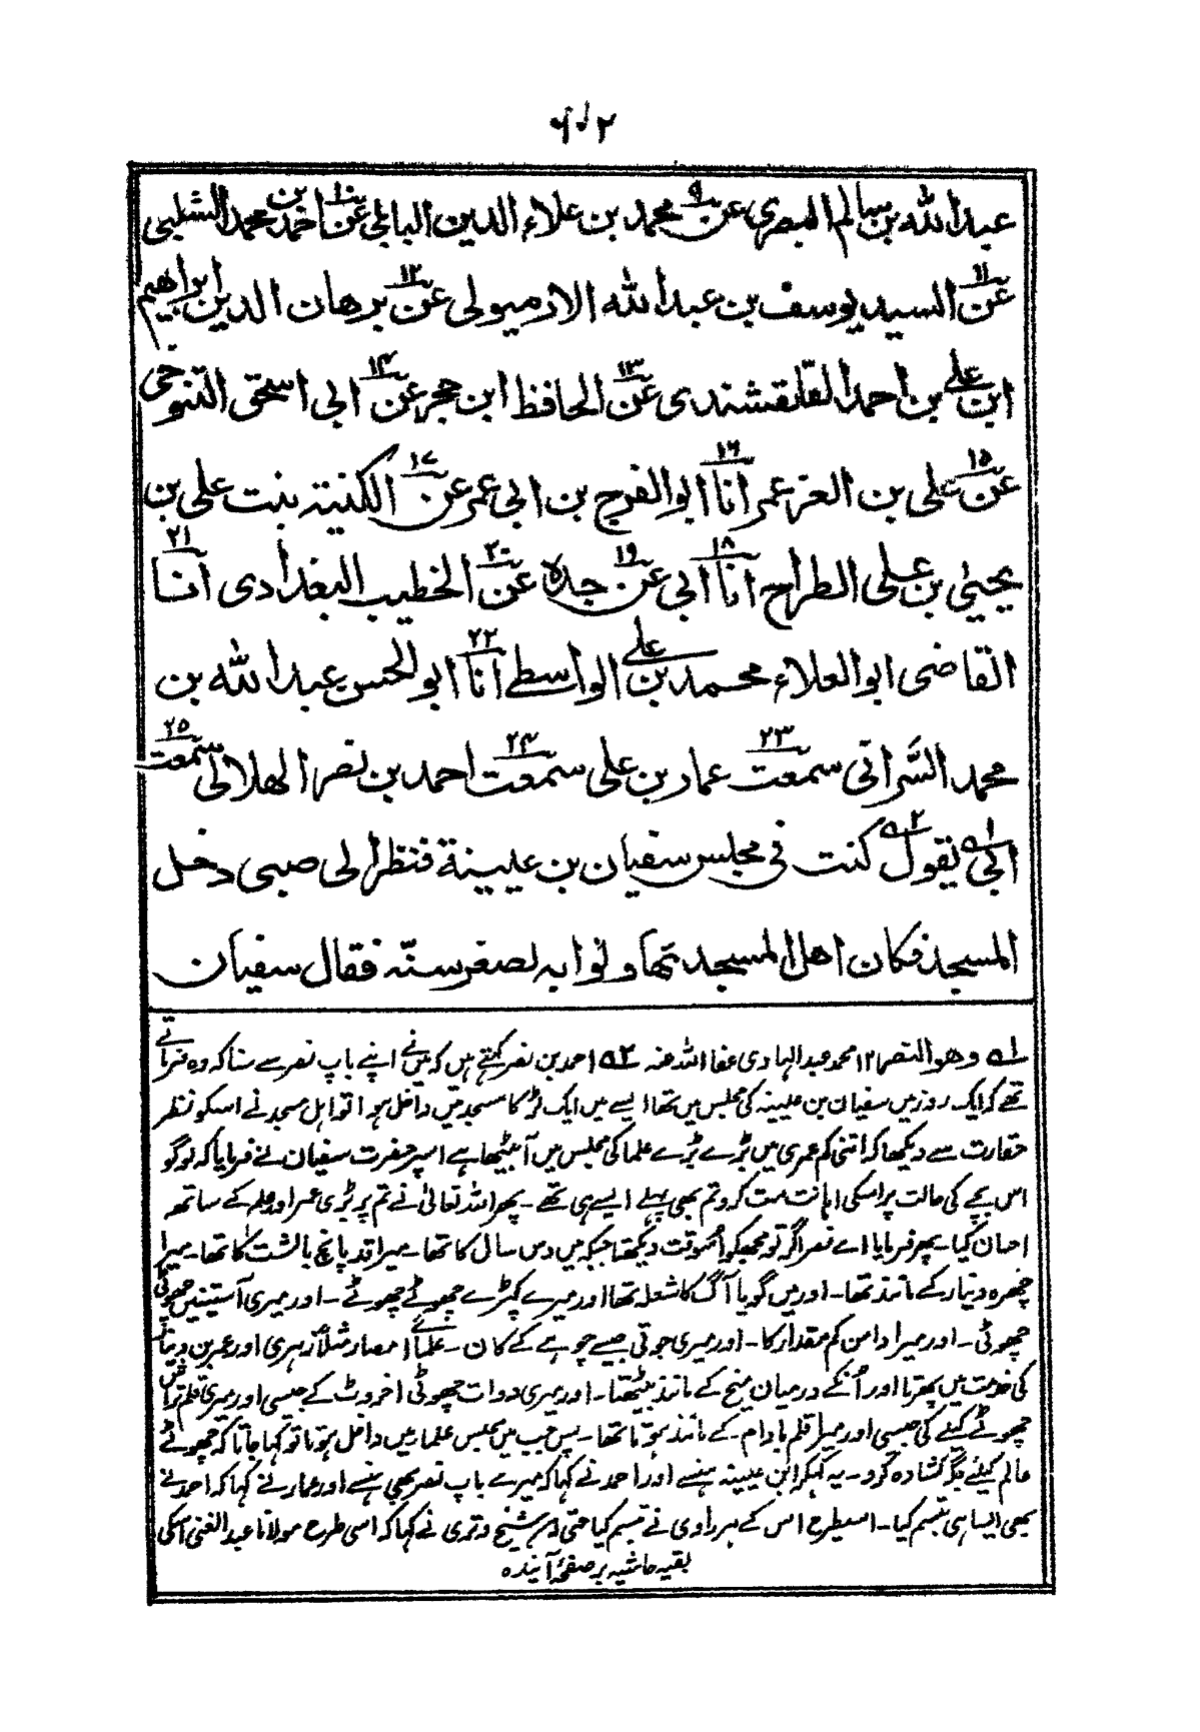 ۲
عبد الله بن سالم البصری عن ۹ محمد بن علاء الدین البابلی عن ۱۰ احمد بن محمد الشلبی
عن ۱۱ السید یوسف بن عبد الله الارمیولی عن ۱۲ برهان الدین ابراهیم
ابن علی بن احمد القلقشندی عن ۱۳ الحافظ ابن حجر عن ۱۴ ابی اسحق التنوخی
عن ۱۵ علی بن العز عمر انا ۱۶ ابو الفرج بن ابی عمر عن ۱۷ الکنیته بنت علی بن
یحییٰ بن علی الطراح انا ۱۸ ابی عن ۱۹ جده عن ۲۰ الخطیب البغدادی انا ۲۱
القاضی ابو العلاء محمد بن علی الواسطے انا ۲۲ ابو الحسن عبد الله بن
محمد السّراتی سمعت ۲۳ عمار بن علی سمعت ۲۴ احمد بن نصر الهلالی سمعت ۲۵
ابی ۱ے یقول ۲ے کنت فی مجلس سفیان بن عیینة فنظر الی صبی دخل
المسجد فکان اهل المسجد تهاونوا به لصغر سنّه فقال سفیان
۱ے وهو النصر ۱۲ محمد عبد الہادی عفا اللہ عنہ ۲ے احمد بن نصر کہتے ہیں کہ میں نے اپنے باپ نصر سے سنا کہ وہ فرماتے
تھے کہ ایک روز میں سفیان بن عیینہ کی مجلس میں تھا ایسے میں ایک لڑکا مسجد میں داخل ہوا تو اہل مسجد نے اسکو نظر
حقارت سے دیکھا کہ اتنی کم عمری میں بڑے بڑے علما کی مجلس میں آ بیٹھا ہے اسپر حضرت سفیان نے فرمایا کہ لوگو
اس بچے کی حالت پر اسکی اہانت مت کرو تم بھی پہلے ایسے ہی تھے۔ پھر اللہ تعالیٰ نے تم پر بڑی عمر اور علم کے ساتھ
احسان کیا۔ پھر فرمایا اے نصر اگر تو مجھکو اُسوقت دیکھتا جبکہ میں دس سال کا تھا۔ میرا قد پانچ بالشت کا تھا۔ میرا
چہرہ دینار کے مانند تھا۔ اور میں گویا آگ کا شعلہ تھا اور میرے کپڑے چھوٹے چھوٹے۔ اور میری آستینیں چھوٹی
چھوٹی۔ اور میرا دامن کم مقدار کا۔ اور میری جوتی جیسے چوہے کے کان۔ علمائے امصار مثلاً زہری اور عمر بن دینار
کی خدمت میں پھرتا اور اُنکے درمیان میخ کے مانند بیٹھتا۔ اور میری دوات چھوٹی اخروٹ کے جیسی اور میری قلم تراش
چھوٹے کیلے کی جیسی اور میرا قلم بادام کے مانند ہوتا تھا۔ پس جب میں مجلس علما میں داخل ہوتا تو کہا جاتا کہ چھوٹے
عالم کیلئے جگہ کشادہ کرو۔ یہ کہکر ابن عیینہ ہنسے اور احمد نے کہا کہ میرے باپ نصر بھی ہنسے اور عمار نے کہا کہ احمد نے
بھی ایسا ہی تبسم کیا۔ اسیطرح اس کے ہر راوی نے تبسم کیا حتی کہ شیخ وتری نے کہا کہ اسی طرح مولانا عبد الغنی اسکی
بقیہ حاشیہ بر صفحۂ آیندہ